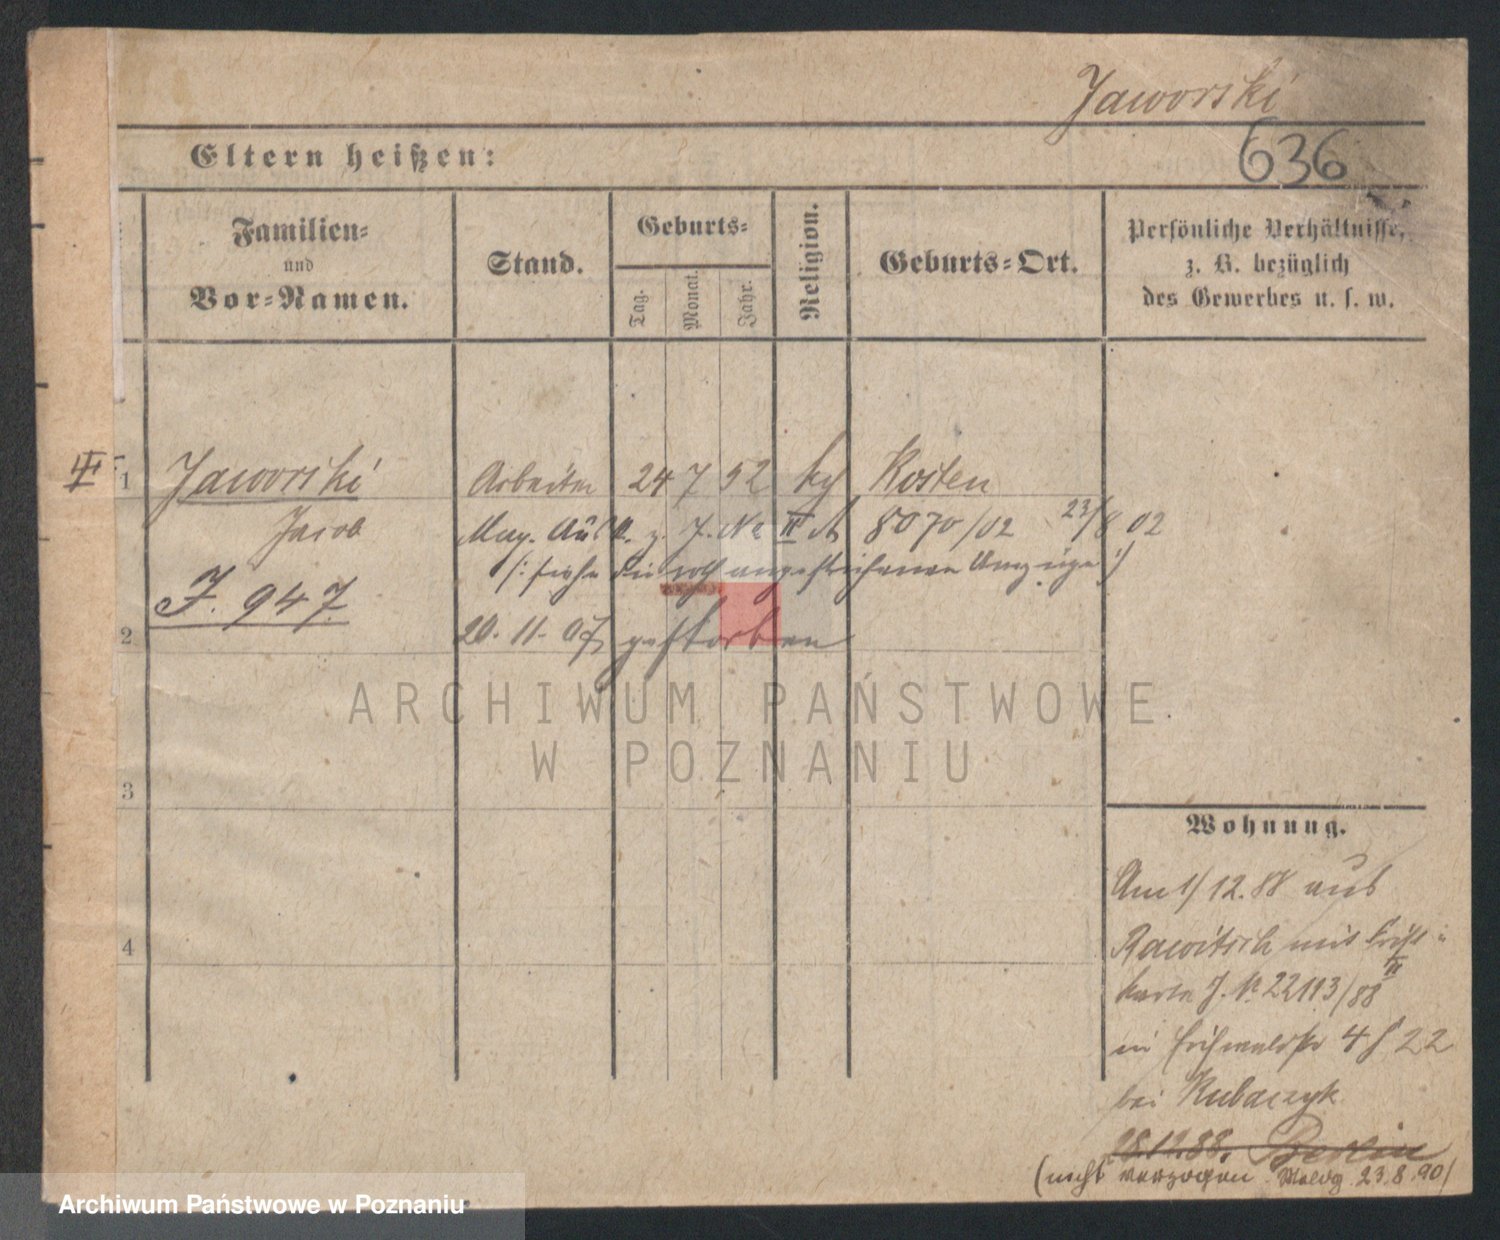 Jaworski
636
Eltern heißen:
Familien-
und
Vor-Namen.
Stand.
Geburts-
Tag.
Monat.
Jahr.
Religion.
Geburts-Ort.
Persönliche Verhältnisse,
z. B. bezüglich
des Gewerbes u. s. w.
III 1 Jaworski Arbeiter 24 7 52 kth Kosten
Jacob
J. No II A 8070/02 23/8 02
(: siehe die roth angestrichenen Anzüge :)
J. 947
2 20. 11. 07 gestorben
ARCHIWUM PAŃSTWOWE
W POZNANIU
3
Wohnung.
Am 1/12.88 aus
4
Rawitsch mit
karte J. No 22113/88 II
in 4 22
bei Kubaczyk
28.12.88. Berlin
(nicht verzogen Meldg. 23.8.90)
Archiwum Państwowe w Poznaniu